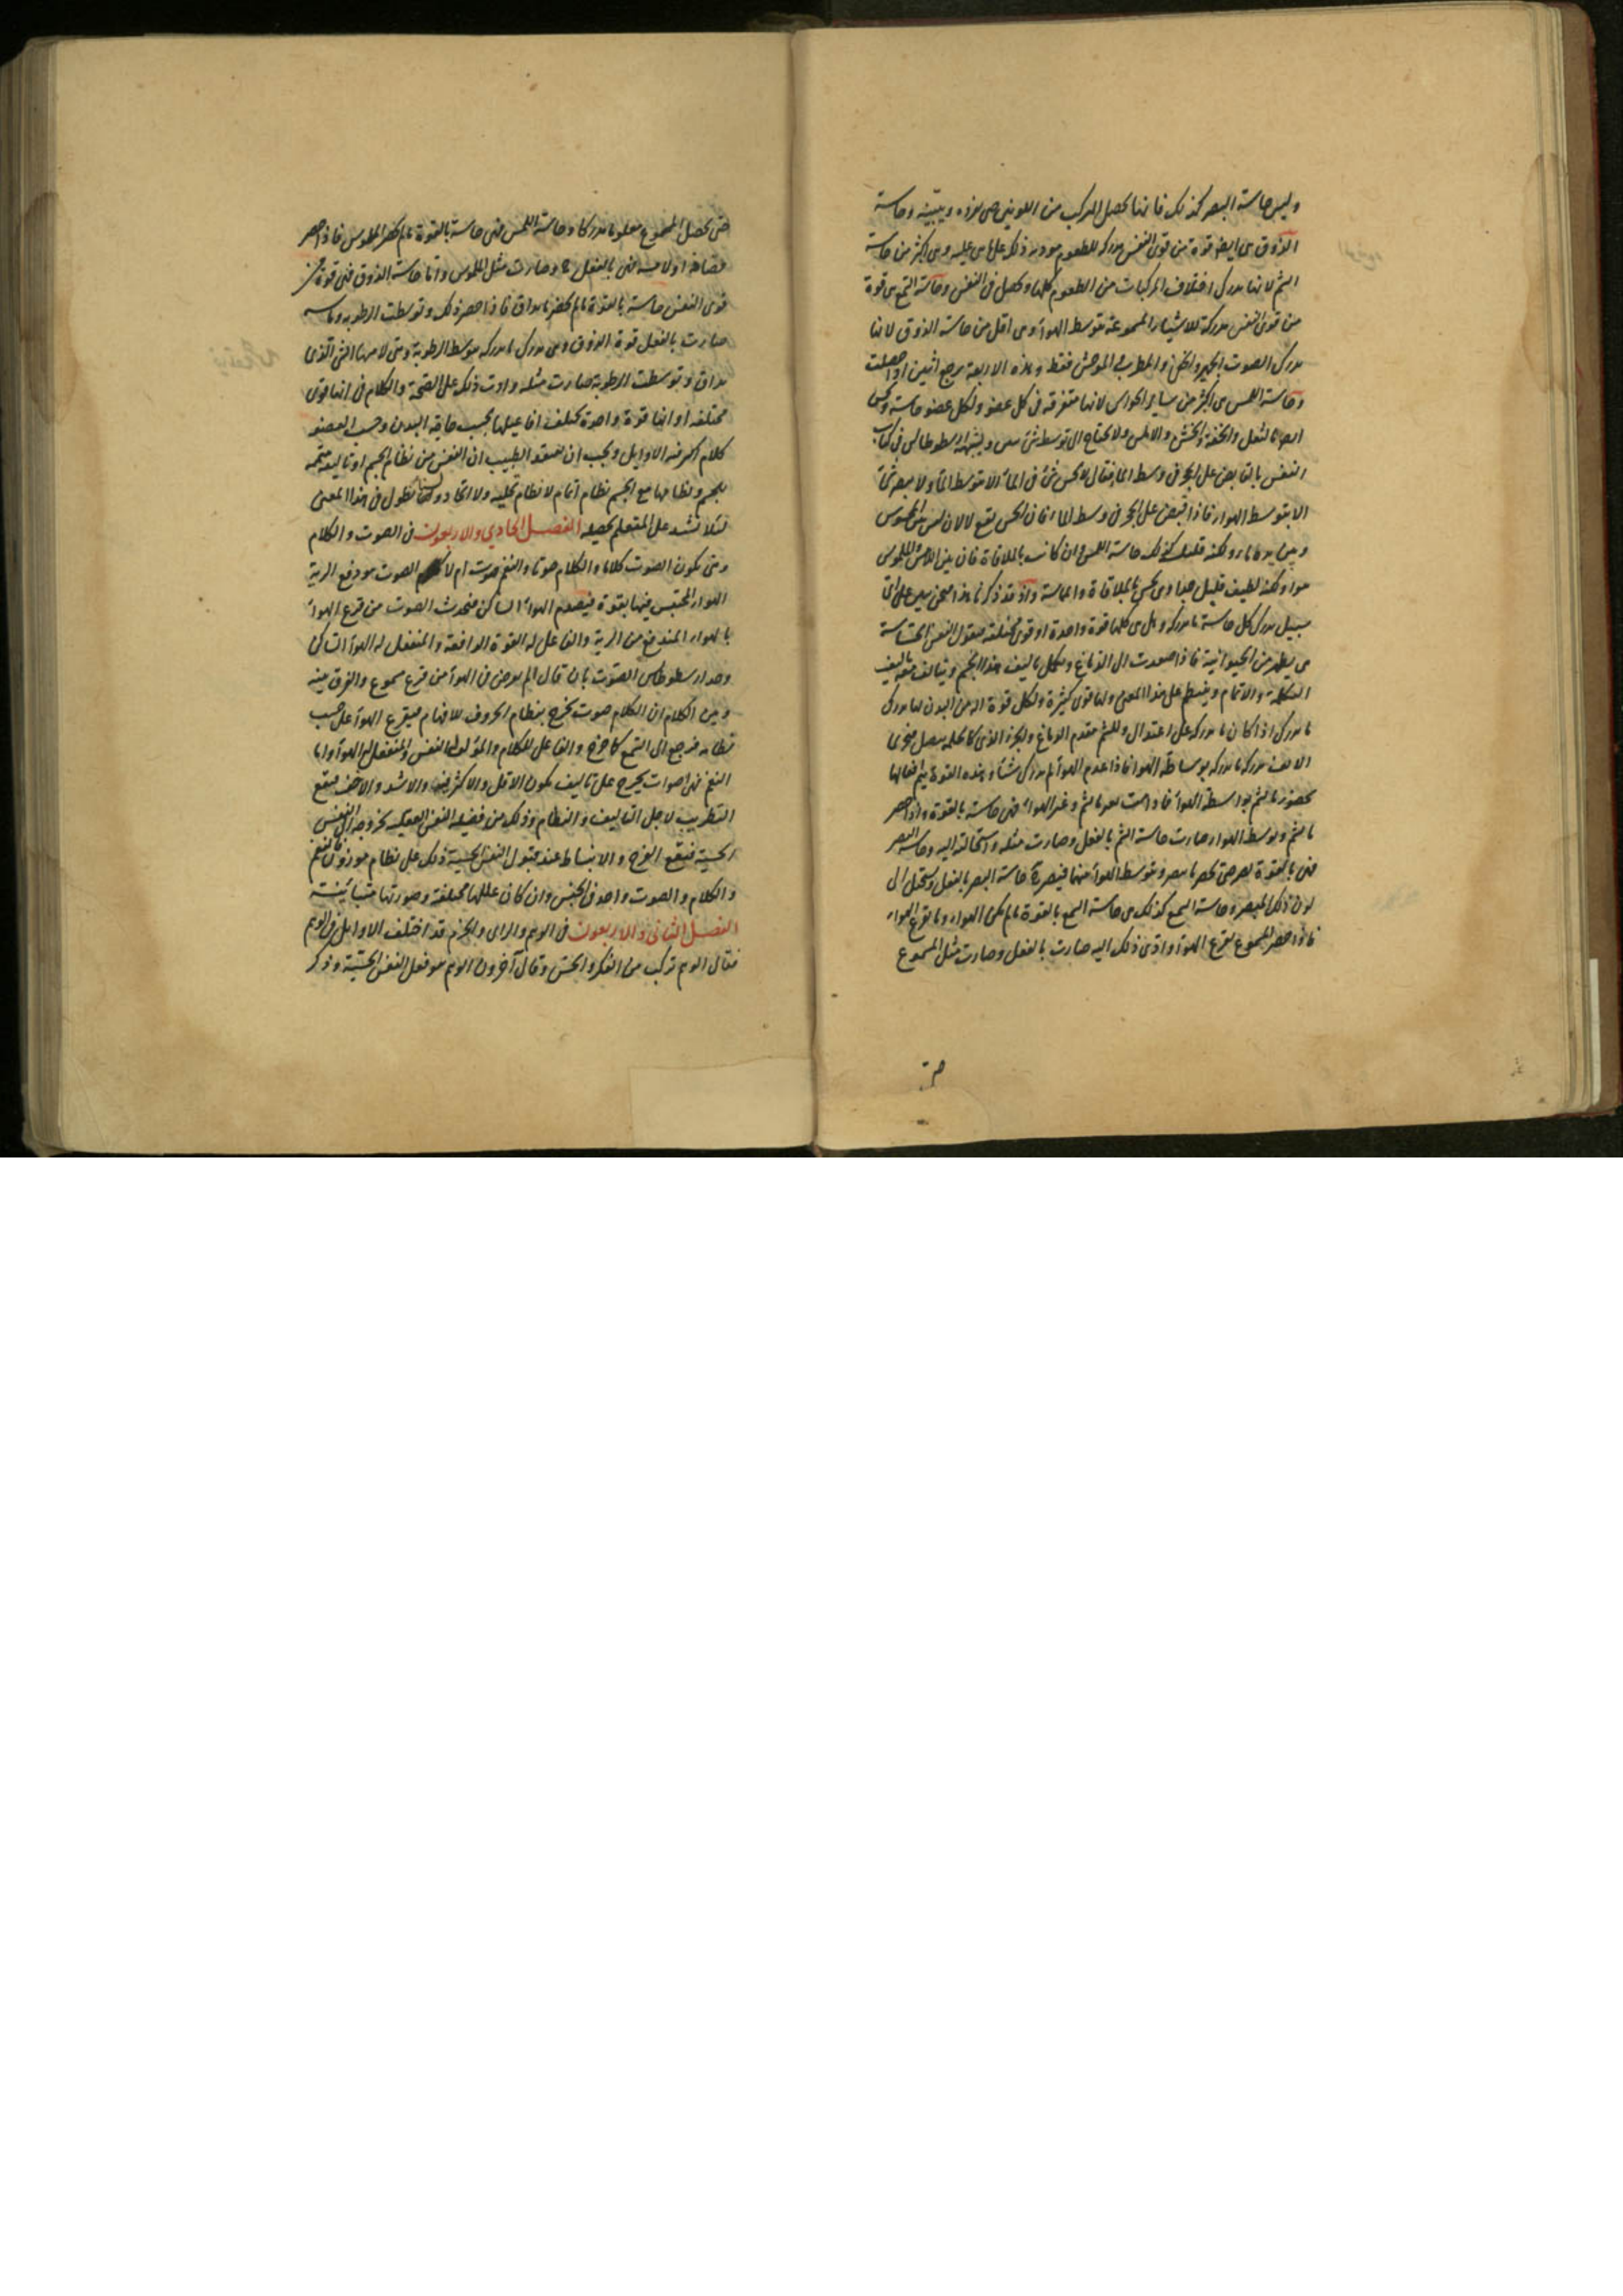 وليس حاسة البصر كذلك فانها تحصل المركب من اللونين حتى تفرده وتبينه وحاسة
الذوق هى ايضا قوة من قوى النفس مدركة للطعوم مودية ذلك على ما هى عليه وهى اكثر من حاسة
الشم لانها تدرك اختلاف المركبات من الطعوم كلها وتحصل فى النفس وحاسة السمع هى قوة
من قوى النفس مدركة للاشياء المسموعة بتوسط الهوآ وهى اقل من حاسة الذوق لانها
تدرك الصوت الجهير والخفى والمطرب والموحش فقط وهذه الاربعة يرجع اثنين اذا حصلت
وحاسة اللمس هى اكثر من سائر الحواس لانها متفرقة فى كل عضو ولكل عضو حاسة وتحس
ايضا بالثقل والخفة والخشن والاملس ولا تحتاج الى توسط شئ ويشبه ارسطوطالس فى كتاب
النفس بالقابض على الحجر فى وسط الما فقال لا تحس شئ فى المآ الا بتوسط المآ ولا يبصر شئ
الا بتوسط الهوا فاذا قبض على الحجر فى وسط الماء فان الحس يقع لا لان ليس بين المحسوس
وبين يده ماء ولكنه قليل كذلك حاسة اللمس وان كانت بالملاقاة فان بين اللامس والملموس
هوا ولكنه لطيف قليل جدا وهى تحس بالملاقاة والمماسة واذ قد ذكرنا هذا فنحن نبين على اى
سبيل تدرك كل حاسة ما تدركه وهل هى كلها قوة واحدة او قوى مختلفة فنقول النفس الحساسة
هى تظهر من الحيوانية فاذا صعدت الى الدماغ وتكمل تاليف هذا الجسم ويتالف معه تاليف
التكملة والاتمام وينبسط على هذا المعنى ولها قوى كثيرة ولكل قوة اله من البدن لها تدرك
ما تدرك اذا كان ما تدركه على اعتدال وللشم مقدم الدماغ والجزء الذى كالحلمة يتصل بمجرى
الانف تدركه ما تدركه بوساطة الهوا فاذا عدم الهوآ لم تدرك شيئا وهذه القوة يتم افعالها
بحضور ما تشم بواسطة الهوآ فاذا لم يشم وغير الهوآ فهى حاسة بالقوة واذا حضر
ما يشم وتوسط الهوا صارت حاسة الشم بالفعل وصارت مثله واستحالت اليه وحاسة البصر
فهى بالقوة تبصر حتى يحضر ما يبصر ويتوسط الهوآ بينهما فيصير حاسة البصر بالفعل وتستحيل الى
لون ذلك المبصر وحاسة السمع كذلك هى حاسة السمع بالقوة ما لم يكن الهواء وما يقرع الهواء
فاذا حضر المسموع بقرع الهوآ وادى ذلك اليه صارت بالفعل وصارت مثل المسموع
حتى يحصل المسموع معلوما مدركا وحاسة اللمس فهى حاسة بالقوة ما لم يحضر الملموس فاذا حضر
فهى بالفعل وصارت مثل الملموس واما حاسة الذوق فهى قوة من
قوى النفس حاسة بالقوة ما لم يحضر ما يذاق فاذا حضر ذلك وتوسطت الرطوبة وماسه
صارت بالفعل قوة الذوق وهى تدرك ما تدركه بتوسط الرطوبة ومتى لامسها الشئ الذى
يذاق وتوسطت الرطوبة صارت مثله وادت ذلك على الصحة والكلام فى انها قوى
مختلفة او انها قوة واحدة تختلف افاعيلها بحسب حاجة البدن وحسب العضو
كلام اكثر فيه الاوايل ويجب ان يعتقد الطبيب ان النفس من نظام الجسم او تاليفه متممة
للجسم ونظامها مع الجسم نظام اتمام لا نظام تحلية ولا اتحاد ولسنا نطول فى هذا المعنى
لئلا نشد على المتعلم تحصيله الفصل الحادي والاربعون فى الصوت والكلام
ومتى تكون الصوت كلاما والكلام صوتا والنغم صوت ام لا الصوت هو دفع الرية
الهوآ المحتبس فيها بقوة فيصدم الهوآ الساكن فيحدث الصوت من قرع الهوآ
بالهوآ المندفع من الرية والفاعل له القوة الدافعة والمنفعل له الهوآ الساكن
وحد ارسطوطالس الصوت بان قال الم يعرض فى الهوآ من قرع مسموع والفرق بينه
وبين الكلام ان الكلام صوت يخرج بنظام الحروف للافهام فيقرع الهوآ على حسب
نظامه فيرجع الى السمع كما خرج والفاعل للكلام والمؤلف له النفس والمنفعل له الهوآ واما
النغم فهى اصوات تخرج على تاليف تكون الاقل والاكثر فيه والاشد والاخف فيقع
التطريب لاجل التاليف والنظام وذلك من فضيلة النفس العقلية بخروجه الى النفس
الحسية فيقع الفرح والانبساط عند قبول النفس الحسية ذلك على نظام موزون فالنغم
والكلام والصوت واحد فى الجنس وان كان عللها مختلفة وصورتها متباينة
الفصل الثانى والاربعون فى الوهم والراى والحزم قد اختلف الاوايل فى الوهم
فقال الوهم تركب من الفكر والحس وقال آخرون الوهم هو فعل النفس الحسية وذكر